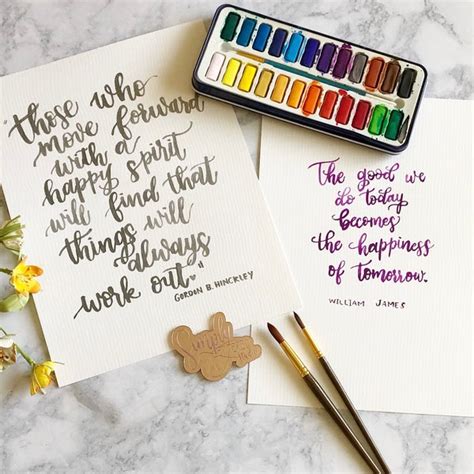 "Those who
move forward
with a
happy spirit
will find that
things will
always
work out"
GORDON B. HINCKLEY
The good we
do today
becomes
the happiness
of tomorrow.
WILLIAM JAMES
Simply